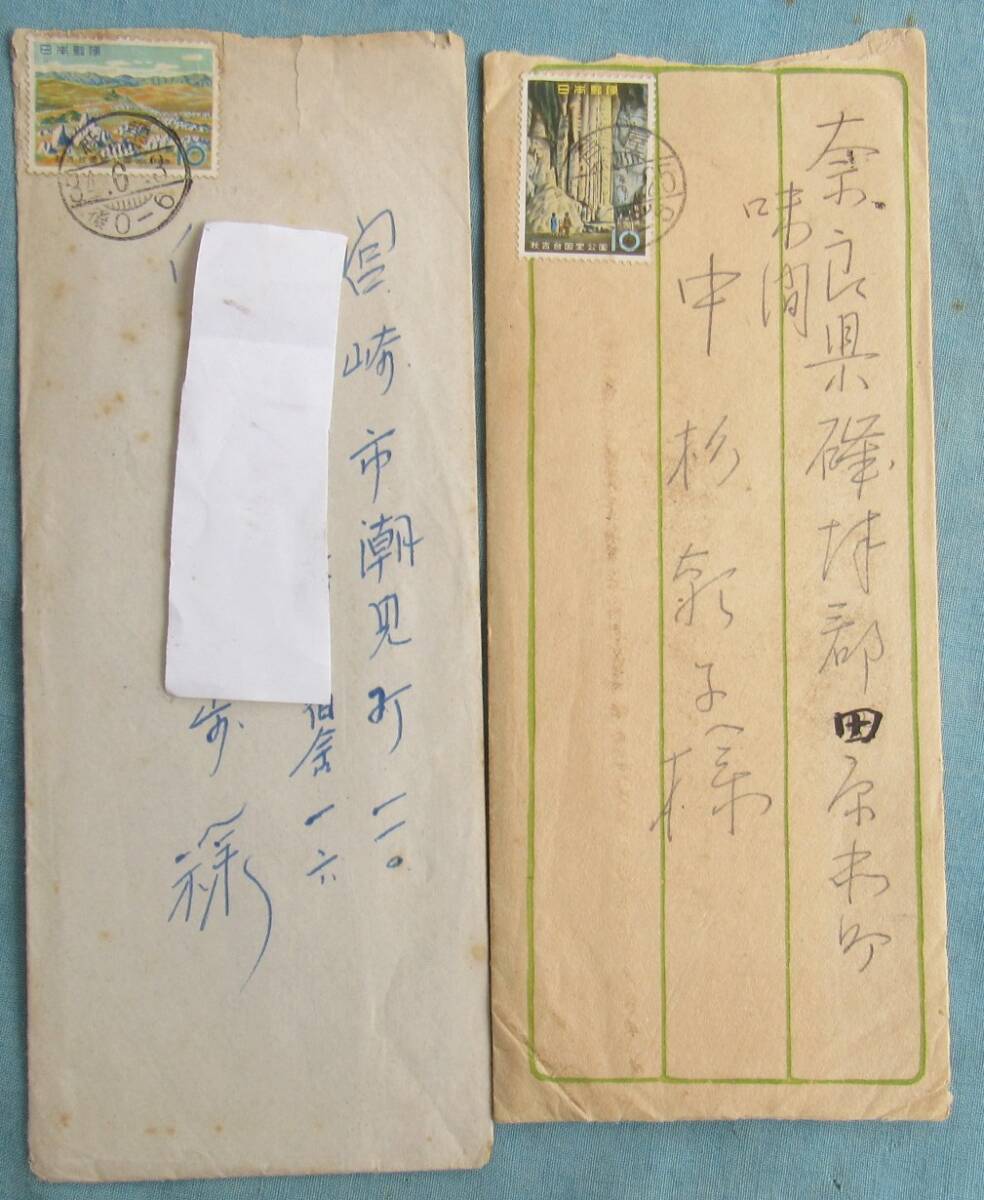 日本郵便
10
6.3
0-6
宮崎市潮見町一一〇
一六
様
日本郵便
秋吉台国定公園
10
奈良県磯城郡田原本町
味間
中杉
子様